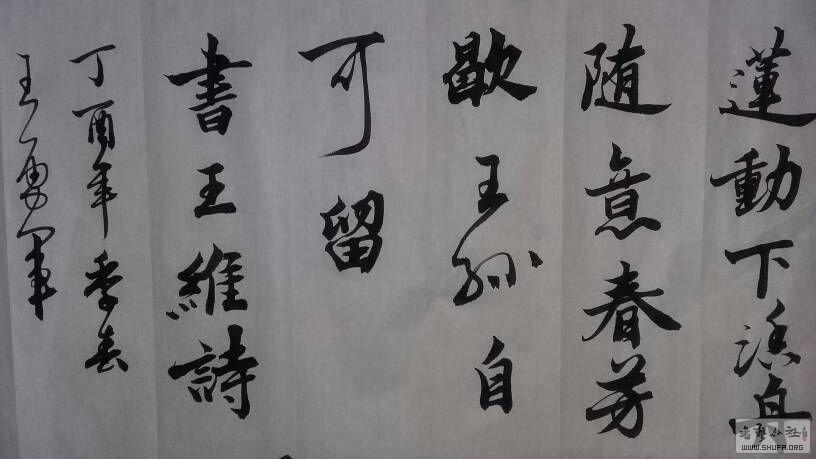 蓮動下漁舟
随意春芳
歇王孙自
可留
書王維詩
丁酉年季春
王勇軍
WWW.SHUFA.ORG